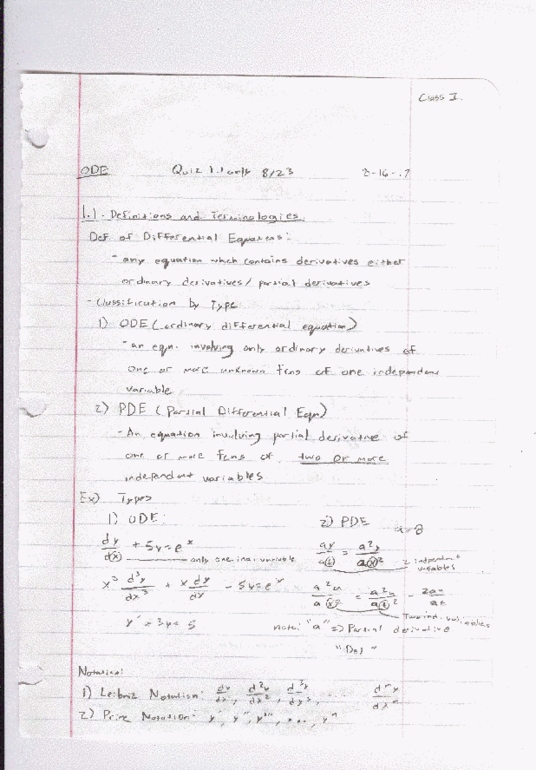 Class I.
ODE Quiz 1.1 only 8/23
1.1 - Definitions and Terminologies
Def of Differential Equations:
- any equation which contains derivatives either
ordinary derivatives / partial derivatives
- Classification by Type
1) ODE (ordinary differential equation)
- an eqn. involving only ordinary derivatives of
one or more unknown fcns of one independent
variable
2) PDE (Partial Differential Eqn)
- An equation involving partial derivative of
one or more fcns of two or more
independent variables
Ex) Types
1) ODE: 2) PDE a=∂
dy/dx + 5y = e^x ay/a(t) = a²y/a(x)²
only one ind. variable 2 independent
variables
x³ d³y/dx³ + x dy/dx - 5y = e^x a²u/a(x)² = a²u/a(t)² - 2au/at
Two ind. variables
y' + 3y = 5 note: "a" => Partial derivative
"Del"
Notation:
1) Leibniz Notation: dy/dx, d²y/dx², d³y/dx³, ... d^n y/dx^n
2) Prime Notation: y', y'', y''', ..., y^n